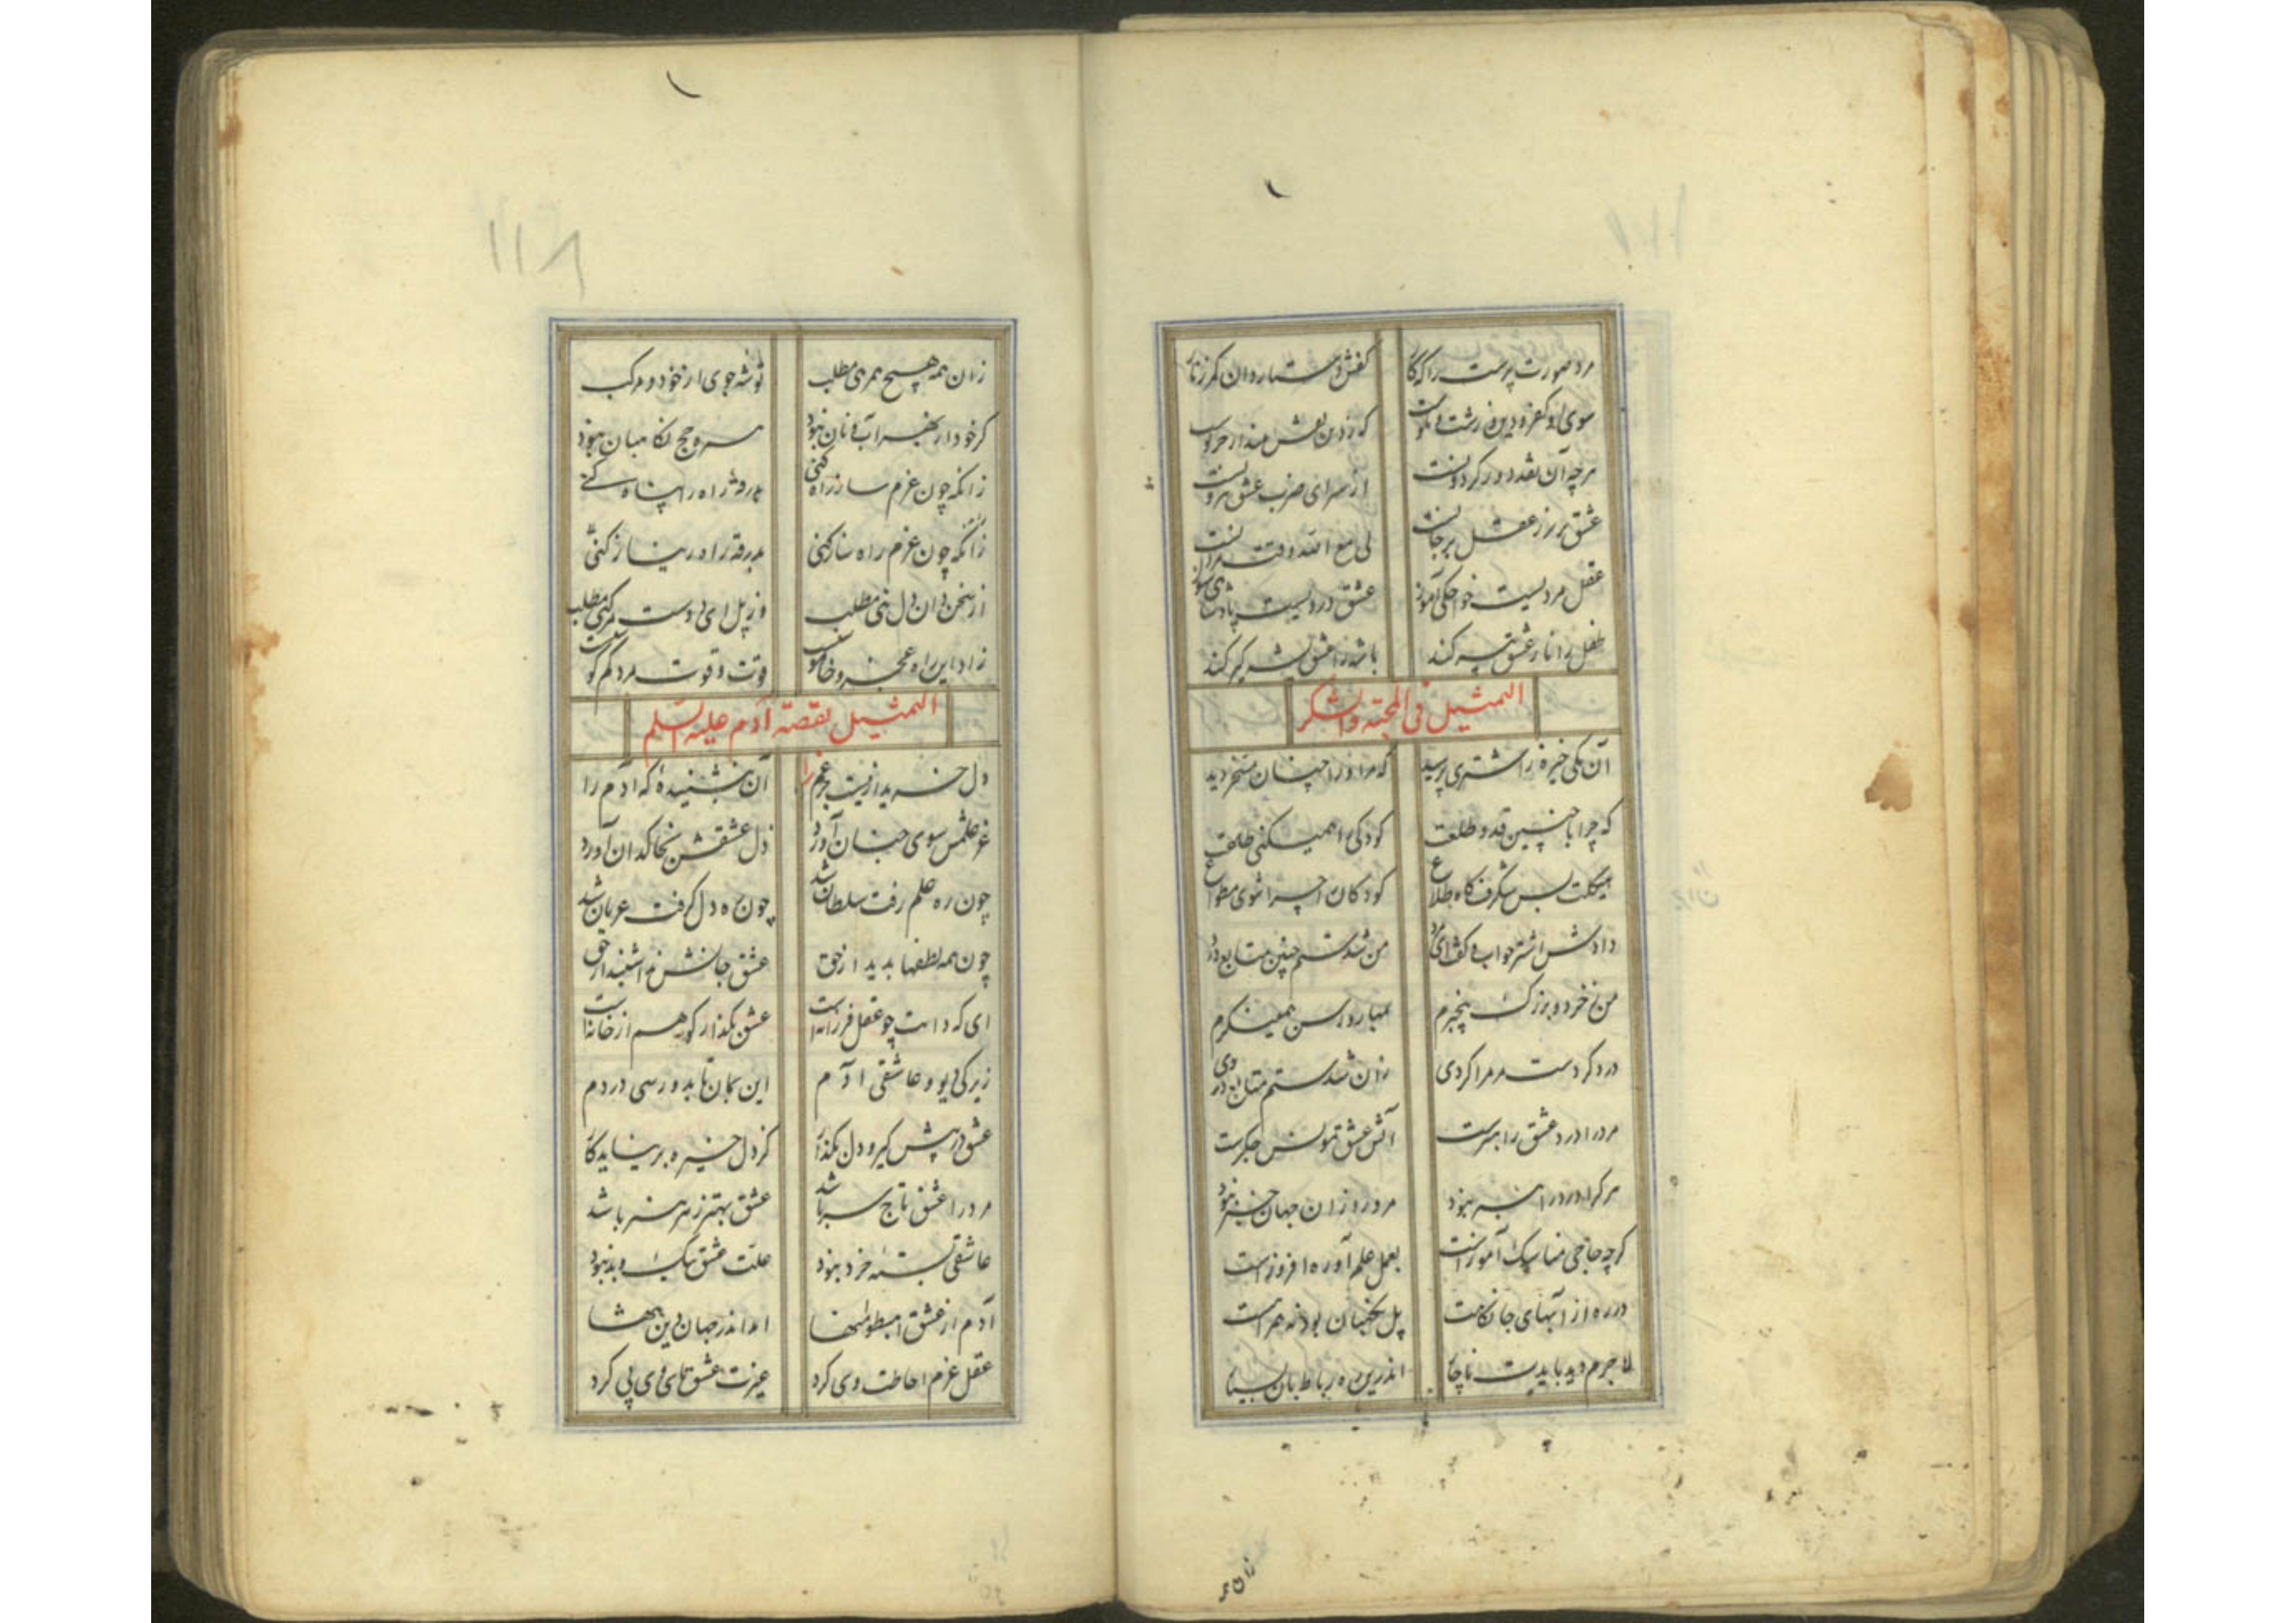 مرد صورت پرست را که کار
کفش دستار دان کمر زنار
سوی او کفر و دین و زشت و نکوست
که زدین نقش
هرچه آن نقد دور گردونست
از سرای ضرب عشق بیرونست
عشق برتر ز عقل و جانست
لی مع الله وقت مردانست
عقل مردیست خواجگی آموز
عشق دردیست پادشاهی سوز
طفل را نار عشق پیر کند
باشه را عشق شیر گیر کند
التمثیل فی المحبة والشکر
آن یکی خیره ز اشتری پرسید
که مر او را چنان مسخر دید
که چرا با چنین قد و طلعت
کودکی را همیکنی طاعت
بس شگرف گاه طلاع
کودکان را چرا شوی مطواع
دادش اشتر جواب و گفت ای مرد
من شدستم چنین متابع درد
من ز خرد و بزرگ بیخبرم
بمهار و رسن همینگرم
درد کردست مر مرا کردی
زان شدستم متابع دردی
مرد را درد عشق راهبرست
آتش عشق مونس جگرست
هر کرا درد راهبر نبود
مرد را زان جهان خبر نبود
گرچه حاجی مناسک آموزست
بعمل علم آوره افروزست
در ره از آبهای جانکاهست
پل نگهبان بود نه همراهست
لاجرم دید بایدت ناچار
اندرین ره رباط بان بسیار
زان همه
۱۱۸
زان همه هیچ همرهی مطلب
توشه جوی از خود و مرکب
گر خود از بهر آب و نان نبود
سر ره حج نگاهبان نبود
زانکه چون عزم ساز راه کنی
بدرقه راه را پناه کنی
زانکه چون عزم راه ساز کنی
بدرقه راه را نیاز کنی
از سخن دان دل تنی مطلب
وز پل ای دوست مرکبی مطلب
زاد این راه عجز و خاموشیست
قوت و قوت مرد کم کوشیست
التمثیل بقصة آدم علیه السلم
دل خرید از بیت عزم را
آن بنشنیدهٔ که آدم را
عز علمش سوی جنان آورد
ذل عشقش بخاکدان آورد
چون ره علم رفت سلطان شد
چون ره دل گرفت عریان شد
چون همه لطفها بدید از حق
عشق جانش
ای که ذاتت چو عقل فرزانه است
عشق بگذار کو هم از خانه است
زیرکی دیو و عاشقی آدم
این بمان تا بدو رسی در دم
عشق در پیش گیر و دل بگذار
کز دل خیره برنیاید کار
مرد را عشق تاج سر باشد
عشق بهتر ز هر هنر باشد
عاشقی بستهٔ خرد نبود
علت عشق نیک و بد نبود
آدم از عشق اهبطوا منها
آمد اندر جهان دین تنها
عقل عزم احاطت وی کرد
غیرت عشق پای وی پی کرد